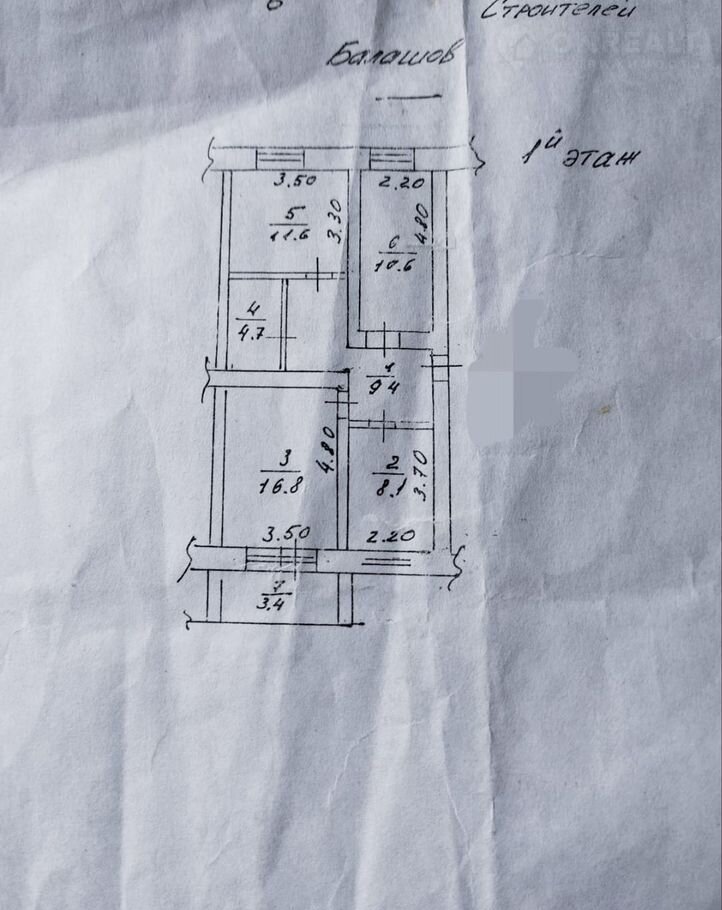 Строителей
Балашов
1й этаж
3.50
2.20
5
11.6
3.30
6
10.6
4.80
4
4.7
1
9.4
3
16.8
4.80
2
8.1
3.70
3.50
2.20
7
3.4